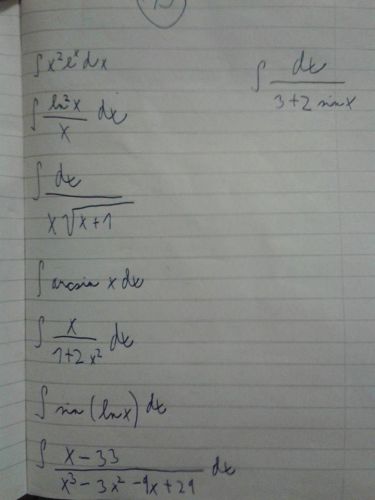 ∫ x² eˣ dx
∫ ln²x / x dx
∫ dx / (x√(x+1))
∫ arcsin x dx
∫ x / (1+2x²) dx
∫ sin (ln x) dx
∫ (x - 33) / (x³ - 3x² - 9x + 29) dx
∫ dx / (3 + 2 sin x)